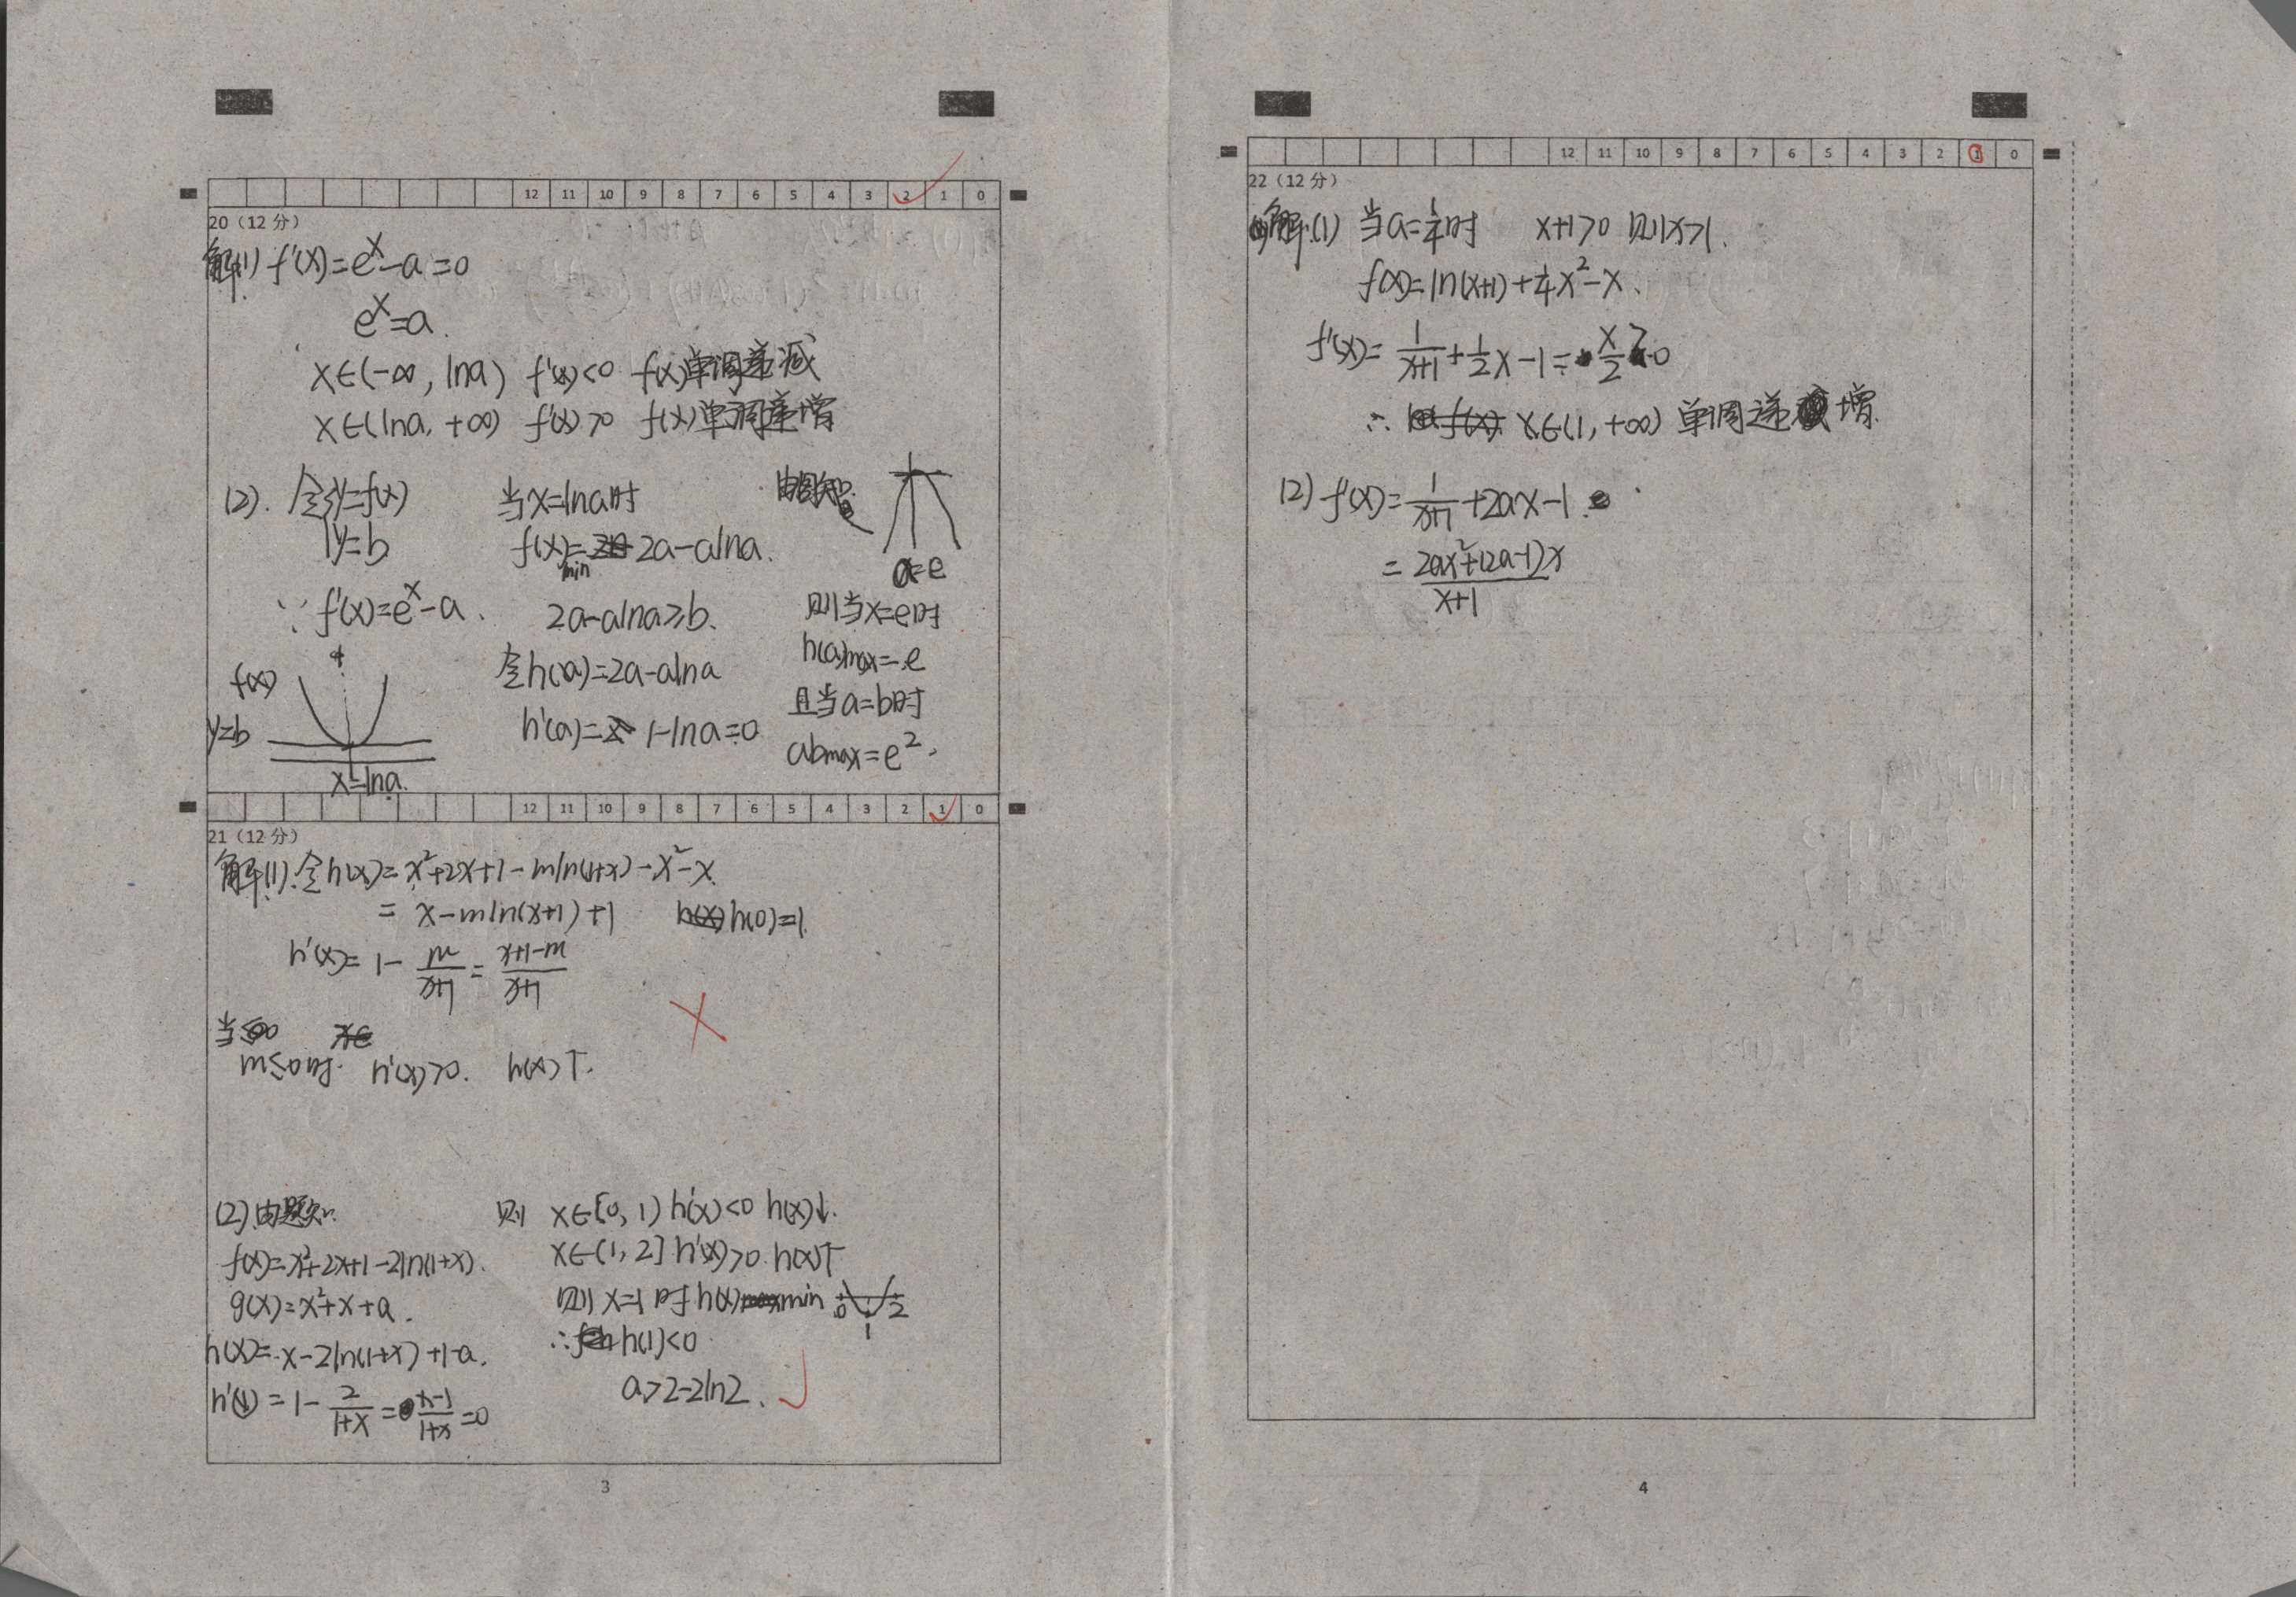 12 11 10 9 8 7 6 5 4 3 2 1 0
20（12 分）
解(1) f'(x)=e^x-a=0
e^x=a.
x∈(-∞, lna) f'(x)<0 f(x)单调递减
x∈(lna, +∞) f'(x)>0 f(x)单调递增
(2). 令{y=f(x)
y=b
∵ f'(x)=e^x-a.
f(x)
y=b
x=lna.
当x=lna时
f(x)min=2a-alna.
2a-alna≥b.
令h(a)=2a-alna
h'(a)=1-lna=0
由图知
a=e
则当x=e时
h(a)max=e
且当a=b时
abmax=e².
12 11 10 9 8 7 6 5 4 3 2 1 0
21（12 分）
解(1).令h(x)=x²+2x+1-mln(1+x)-x²-x.
= x-mln(x+1)+1 h(0)=1.
h'(x)= 1- m/(x+1) = (x+1-m)/(x+1)
当
m≤0时. h'(x)>0. h(x)↑.
(2)由题知.
f(x)=x²+2x+1-2ln(1+x).
g(x)=x²+x+a.
h(x)=x-2ln(1+x)+1-a.
h'(x)=1- 2/(1+x) = (x-1)/(1+x) =0
则 x∈[0, 1) h'(x)<0 h(x)↓.
x∈(1, 2] h'(x)>0. h(x)↑
则x=1时h(x)min
0 1 2
∴ h(1)<0
a>2-2ln2.
3
12 11 10 9 8 7 6 5 4 3 2 1 0
22（12 分）
解.(1) 当a=1/4时 x+1>0 则x>1.
f(x)=ln(x+1)+1/4x²-x.
f'(x)= 1/(x+1)+1/2x-1= x/2 ≥0
∴ x∈(1, +∞) 单调递增.
(2) f'(x)= 1/(x+1)+2ax-1.
= (2ax²+(2a-1)x)/(x+1)
4